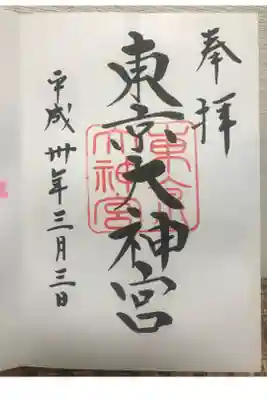 奉拝
東京大神宮
平成卅年三月三日
東京
大神宮